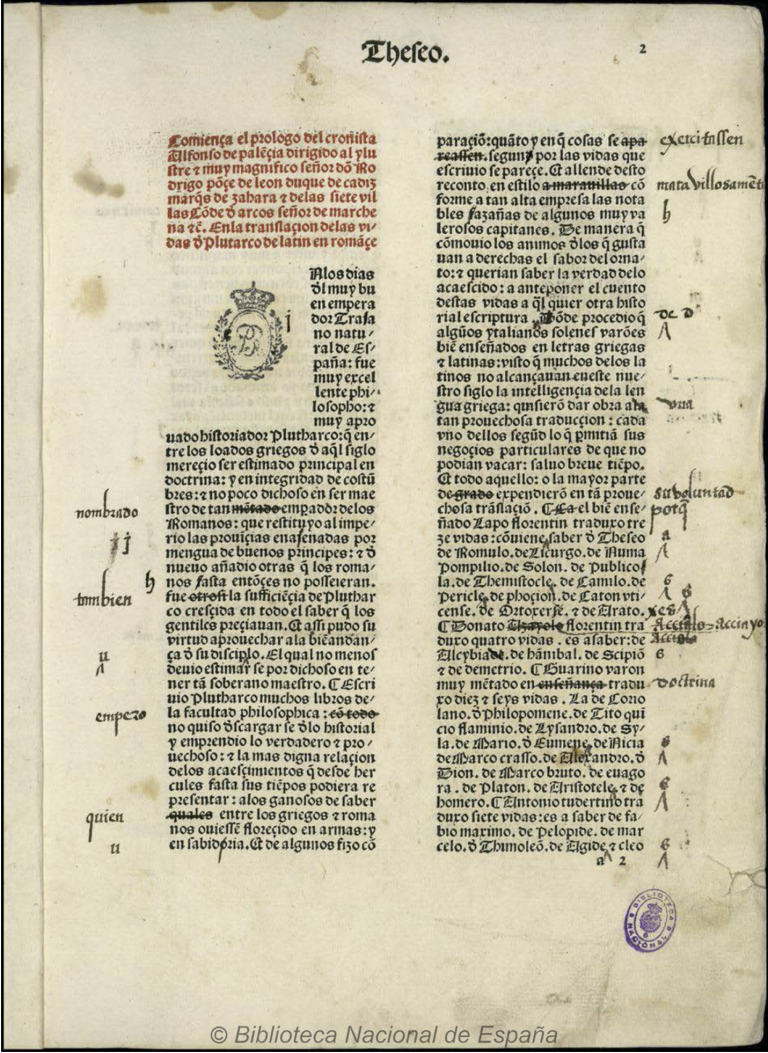 Theseo.
2
Comiença el prologo del cronista
Alfonso de palēçia dirigido al ylu
stre ⁊ muy magnifico señor dō Ro
drigo pōçe de leon duque de cadiz
marq̄s de zahara ⁊ delas siete vil
las Cōde ď arcos señor de marche
na ⁊c̄. Enla translacion delas vi-
das ď Plutarco de latin en romāçe
Nlos dias
ďl muy bu
en empera
dor Traja
no natu/
ral de Es/
paña: fue
muy excel
lente phi/
losopho: ⁊
muy apro
uado historiador Plutharco: q̄ en/
tre los loados griegos ď aq̄l siglo
mereçio ser estimado principal en
doctrina: y en integridad de costū
bres: ⁊ no poco dichoso en ser mae
stro de tan mētado emꝑador delos
Romanos: que restituyo al impe/
rio las prouiçias enajenadas por
mengua de buenos principes: ⁊ ď
nueuo añadio otras q̄ los roma/
nos fasta entōçes no posseieran.
fue otrosi la sufficiēçia de Pluthar
co cresçida en todo el saber q̄ los
gentiles preçiauan. Et assi pudo su
virtud aprouechar a la biēandan/
ça ď su disciplo. El qual no menos
deuio estimar se por dichoso en te/
ner tā soberano maestro. ¶ Escri
uio Plutharco muchos libros de/
la facultad philosophica: cō todo
no quiso ďscargar se ďlo historial
y emprendio lo verdadero ⁊ pro/
uechoso: ⁊ la mas digna relaçion
delos acaesçimientos q̄ desde her
cules fasta sus tiēpos podiera re
presentar: alos ganosos de saber
quales entre los griegos ⁊ roma
nos ouiessē floreçido en armas: y
en sabidoria. Et de algunos fizo cō
nombrado
jj
h
tambien
u
empezo
quien
u
j
paraçiō: quāto y en q̄ cosas se apa
reassen. segun por las vidas que
escriuio se pareçe. Et allende desto
reconto en estilo a marauillas cō
forme a tan alta empresa las nota
bles fazañas de algunos muy va
lerosos capitanes. De manera q̄
cōmouio los animos ďlos q̄ gusta
uan a derechas el sabor del orna/
to: ⁊ querian saber la verdad delo
acaesçido: a anteponer el cuento
destas vidas a q̄l quier otra histo
rial escriptura. Dōde procedio q̄
algūos ytalianos solenes varōes
biē enseñados en letras griegas
⁊ latinas: visto q̄ muchos delos la
tinos no alcançauan eneste nue/
stro siglo la intelligēçia dela len
gua griega: quisierō dar obra ala
tan prouechosa traducçion: cada
vno dellos segūd lo q̄ ꝑmitiā sus
negoçios particulares de que no
podian vacar: saluo breue tiēpo.
Et todo aquello: o la mayor parte
de grado expendierō en tā proue/
chosa trāslaçiō. ¶ Ca el biē ense/
ñado Lapo florentin traduxo tre
ze vidas: cōuiene saber ď Theseo
de Romulo. de Licurgo. de Numa
Pompilio. de Solon. de Publico/
la. de Themistocle. de Camilo. de
Pericle. de phoçion. de Caton vti/
cense. de Ortoxerse. ⁊ de Arato.
¶ Donato florentin tra
duxo quatro vidas. es a saber: de
Alcybiade. de hānibal. de Scipiō
⁊ de demetrio. ¶ Guarino varon
muy mētado en enseñança tradu
xo diez ⁊ seys vidas. La de Corio
lano. ď Philopomene. de Tito qui
cio flaminio. de Lysandro. de Sy/
la. de Mario. ď Eumene. de Nicia
de Marco crasso. de Alexandro. ď
Dion. de Marco bruto. de euago
ra. de Platon. de Aristotele. ⁊ de
homero. ¶ Antonio tudertino tra
duxo siete vidas: es a saber de fa/
bio maximo. de Pelopide. de mar
celo. ď Thimoleō. de Agide ⁊ cleo
a 2
exercitassen
marauillosamēte
h
de d
vna
su voluntad
porq̄
a
s
s s
xes
Acciaolo
s
doctrina
s
s
s
BIBLIOTECA NACIONAL
© Biblioteca Nacional de España